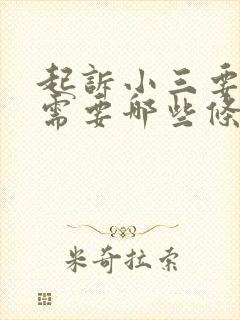 起訴小三要
需要哪些條
米奇拉索